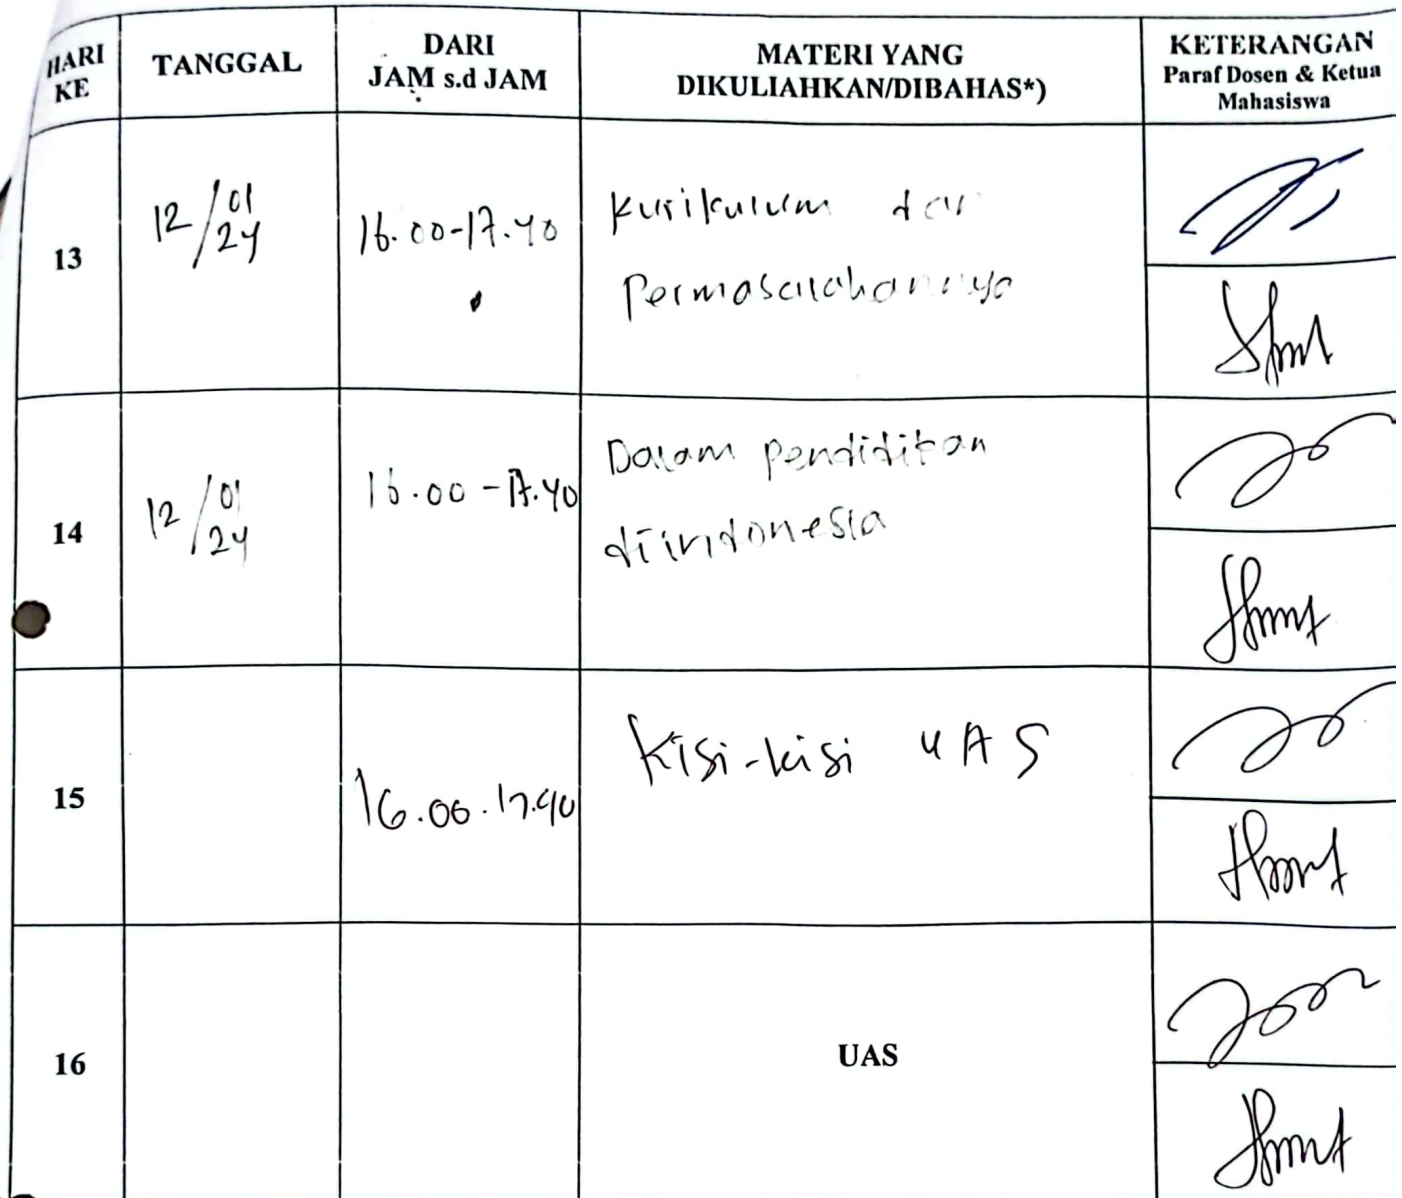 HARI KE
TANGGAL
DARI
JAM s.d JAM
MATERI YANG
DIKULIAHKAN/DIBAHAS*)
KETERANGAN
Paraf Dosen & Ketua
Mahasiswa
13
12/01
24
16.00-17.40
Kurikulum dan
Permasalahannya
14
12/01
24
16.00-17.40
Dalam pendidikan
diindonesia
15
16.00.17.40
Kisi-kisi UAS
16
UAS